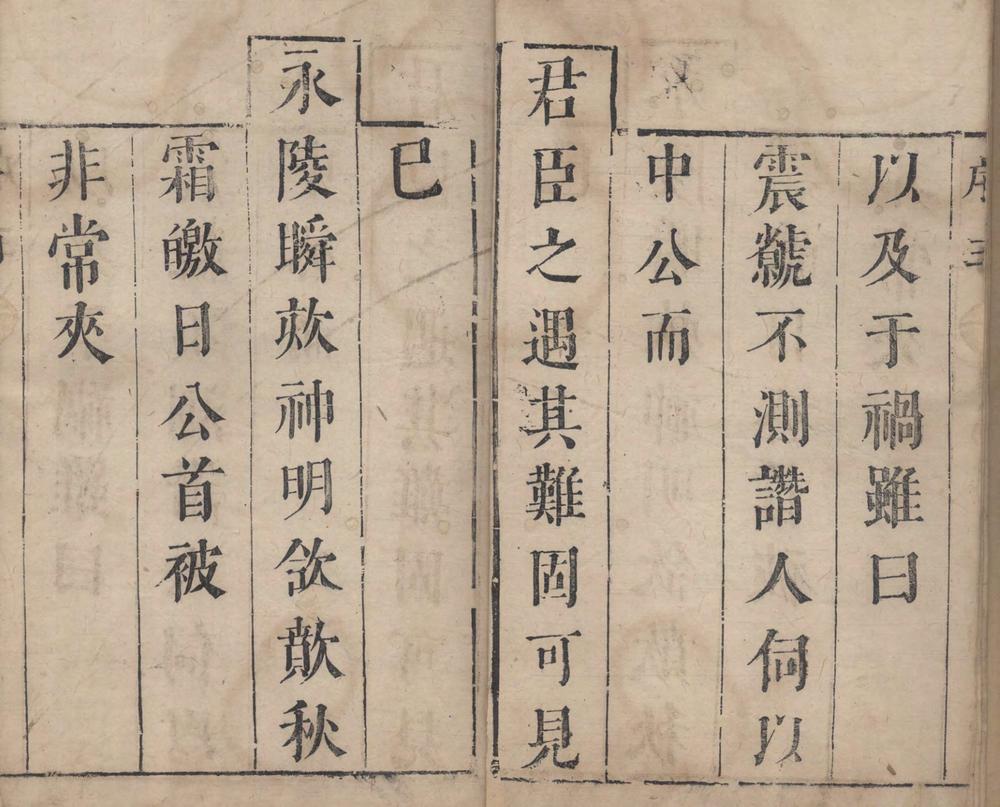 序三
以及于禍雖曰
震虩不測譛人伺以
中公而
君臣之遇其難固可見
已
永陵瞬欻神明欱歕秋
霜皦日公首被
非常夾